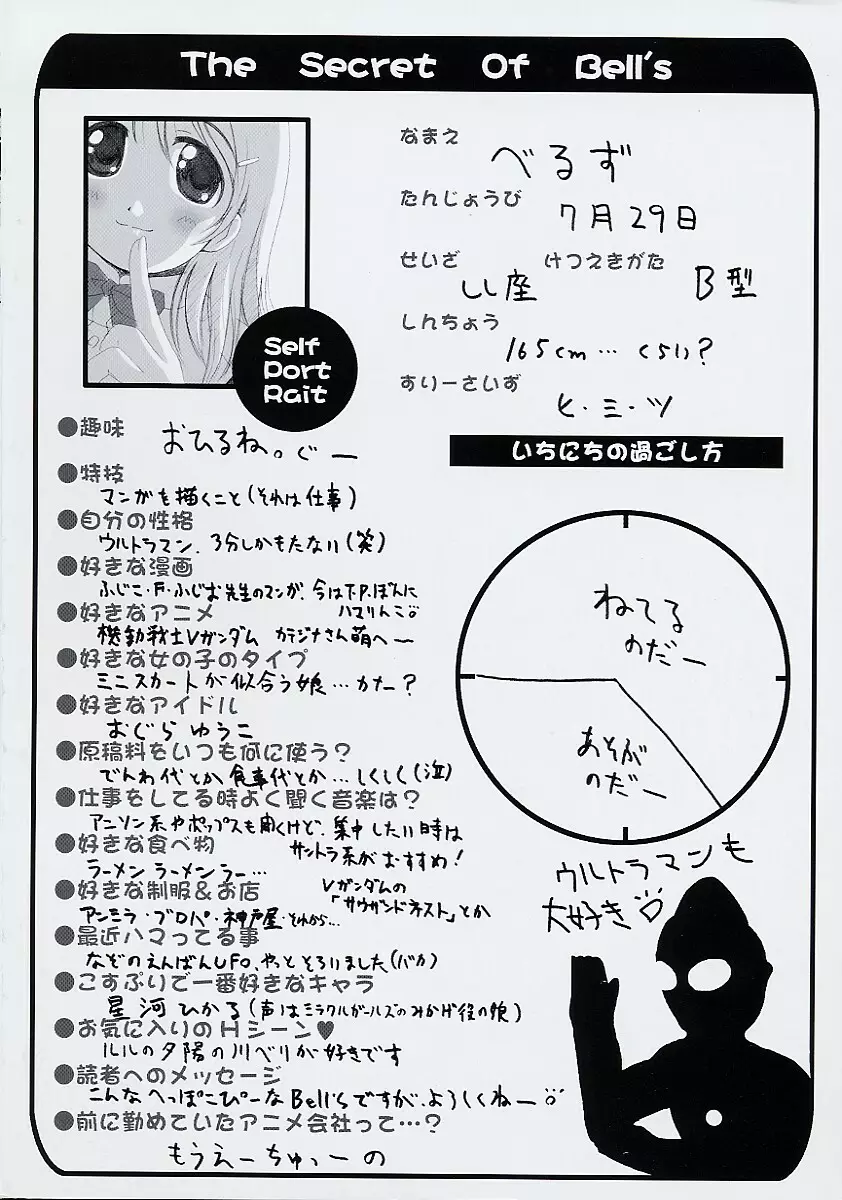 The Secret Of Bell's
なまえ
べるず
たんじょうび
7月29日
せいざ
しし座
けつえきがた
B型
しんちょう
165cm…くらい?
すりーさいず
ヒ・ミ・ツ
Self
Port
Rait
●趣味
おひるね。ぐー
●特技
マンガを描くこと(それは仕事)
●自分の性格
ウルトラマン、3分しかもたない(笑)
●好きな漫画
ふじこ・F・ふじお先生のマンガ、今はT.P.ぼんに
ハマりんこ
●好きなアニメ
機動戦士Vガンダム カテジナさん萌へー
●好きな女の子のタイプ
ミニスカートが似合う娘…かなー?
●好きなアイドル
おぐら ゆうこ
●原稿料をいつも何に使う?
でんわ代とか食事代とか…しくしく(泣)
●仕事をしてる時よく聞く音楽は?
アニソン系やポップスも聞くけど、集中したい時は
サントラ系がおすすめ!
Vガンダムの
「サウザンドネスト」とか
●好きな食べ物
ラーメン ラーメン ラー…
●好きな制服&お店
アンミラ・ブロパ・神戸屋・それから…
●最近ハマってる事
なぞのえんばんUFO、やっとそろいました(バカ)
●こすぷりで一番好きなキャラ
星河ひかる(声はミラクルガールズのみかげ役の娘)
●お気に入りのHシーン♥
ルルの夕陽の川べりが好きです
●読者へのメッセージ
こんなへっぽこぴーなBell'sですが、よろしくねー
●前に勤めていたアニメ会社って…?
もうえーちゅーの
いちにちの過ごし方
ねてる
のだー
あそぶ
のだー
ウルトラマンも
大好き♡